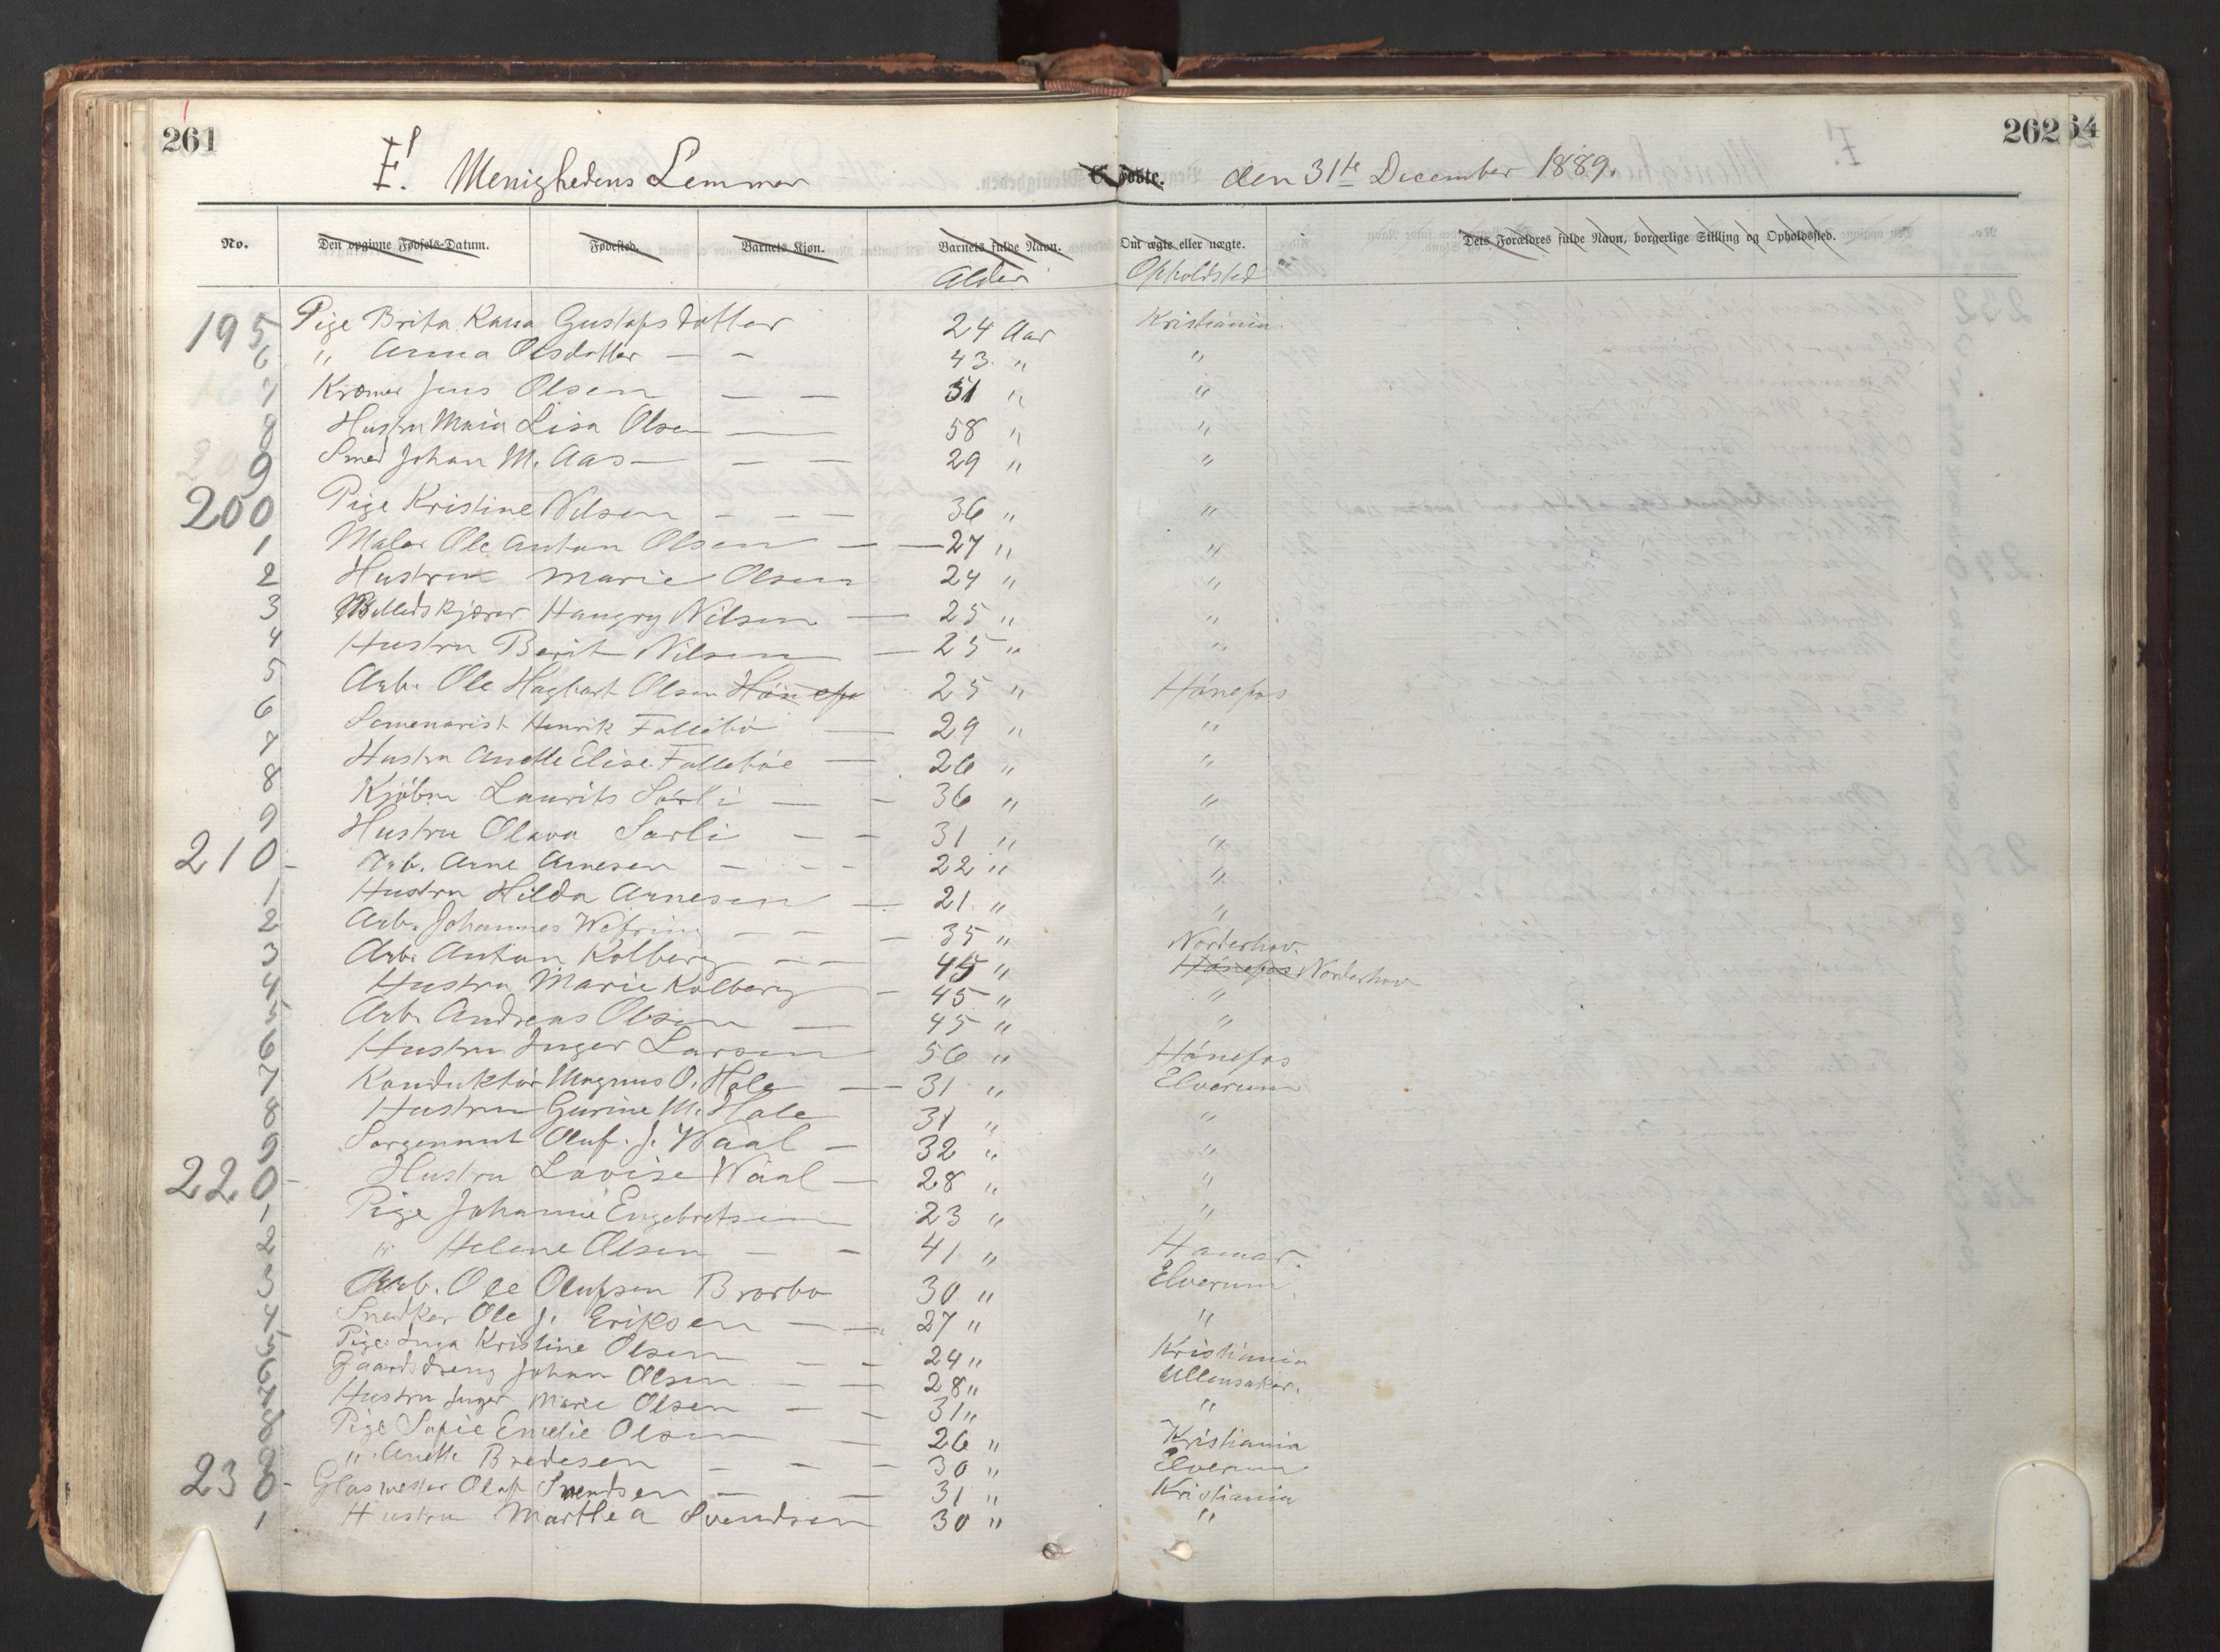 261
262
64
E. Menighedens Lemmer
Fødte.
den 31te December 1889.
No. Den opgivne Fødsels-Datum. Fødested. Barnets Kjøn. Barnets fulde Navn. Om ægte eller uægte. Dets Forældres fulde Navn, borgerlige Stilling og Opholdssted.
Alder Opholdsted
195 Pige Brita Kaisa Gustafsdatter 24 Aar Kristiania.
6 " Anna Olsdatter — — 43 " "
7 Kræmer Jens Olsen — — 51 " "
8 Hustru Maria Lisa Olsen — 58 " "
9 Smed Johan M. Aas — — — 29 " "
200 Pige Kristine Nilsen — — — 36 " "
1 Maler Ole Anton Olsen — — 27 " "
2 Hustru Marie Olsen 24 " "
3 Billedskjærer Hangry Nilsen — 25 " "
4 Hustru Berit Nilsen — 25 " "
5 Arb. Ole Hagbart Olsen Hönefos 25 " Hönefos
6 Semenarist Henrik Fallebö — 29 " "
7 Hustru Anette Elise Falleböe — 26 " "
8 Kjöbm Laurits Sörli — — 36 " "
9 Hustru Olava Sörli — — 31 " "
210 Arb. Arne Arnesen — — — 22 " "
1 Hustru Hilda Arnesen — 21 " "
2 Arb. Johannes Wefring — — — 35 " Norderhov.
3 Arb. Anton Kolberg — — 45 " Hönefos Norderhov
4 Hustru Marie Kolberg — 45 " "
5 Arb. Andreas Olsen — 45 " "
6 Hustru Inger Larsen 56 " Hönefos
7 Konduktör Magnus O. Hole — 31 " Elverum
8 Hustru Gurine M. Hole 31 " "
9 Sergennut Oluf. J. Waal — 32 " "
220 Hustru Lovise Waal — 28 " "
1 Pige Johanne Engebretsen 23 " "
2 " Helene Olsen — — 41 " Hamar.
3 Arb. Ole Olufsen Brorbo 30 " Elverum.
4 Snedker Ole J. Eriksen — — 27 " "
5 Pige Inga Kristine Olsen — — 24 " Kristiania
6 Gaardsdreng Johan Olsen — — 28 " Ullensaker.
7 Hustru Inger Marie Olsen — — 31 " "
8 Pige Sofie Emelie Olsen — 26 " Kristiania
9 " Anette Bredesen — — — 30 " Elverum
230 Glasmester Olaf Svendsen — — 31 " Kristiania
1 Hustru Marthea Svendsen 30 " "